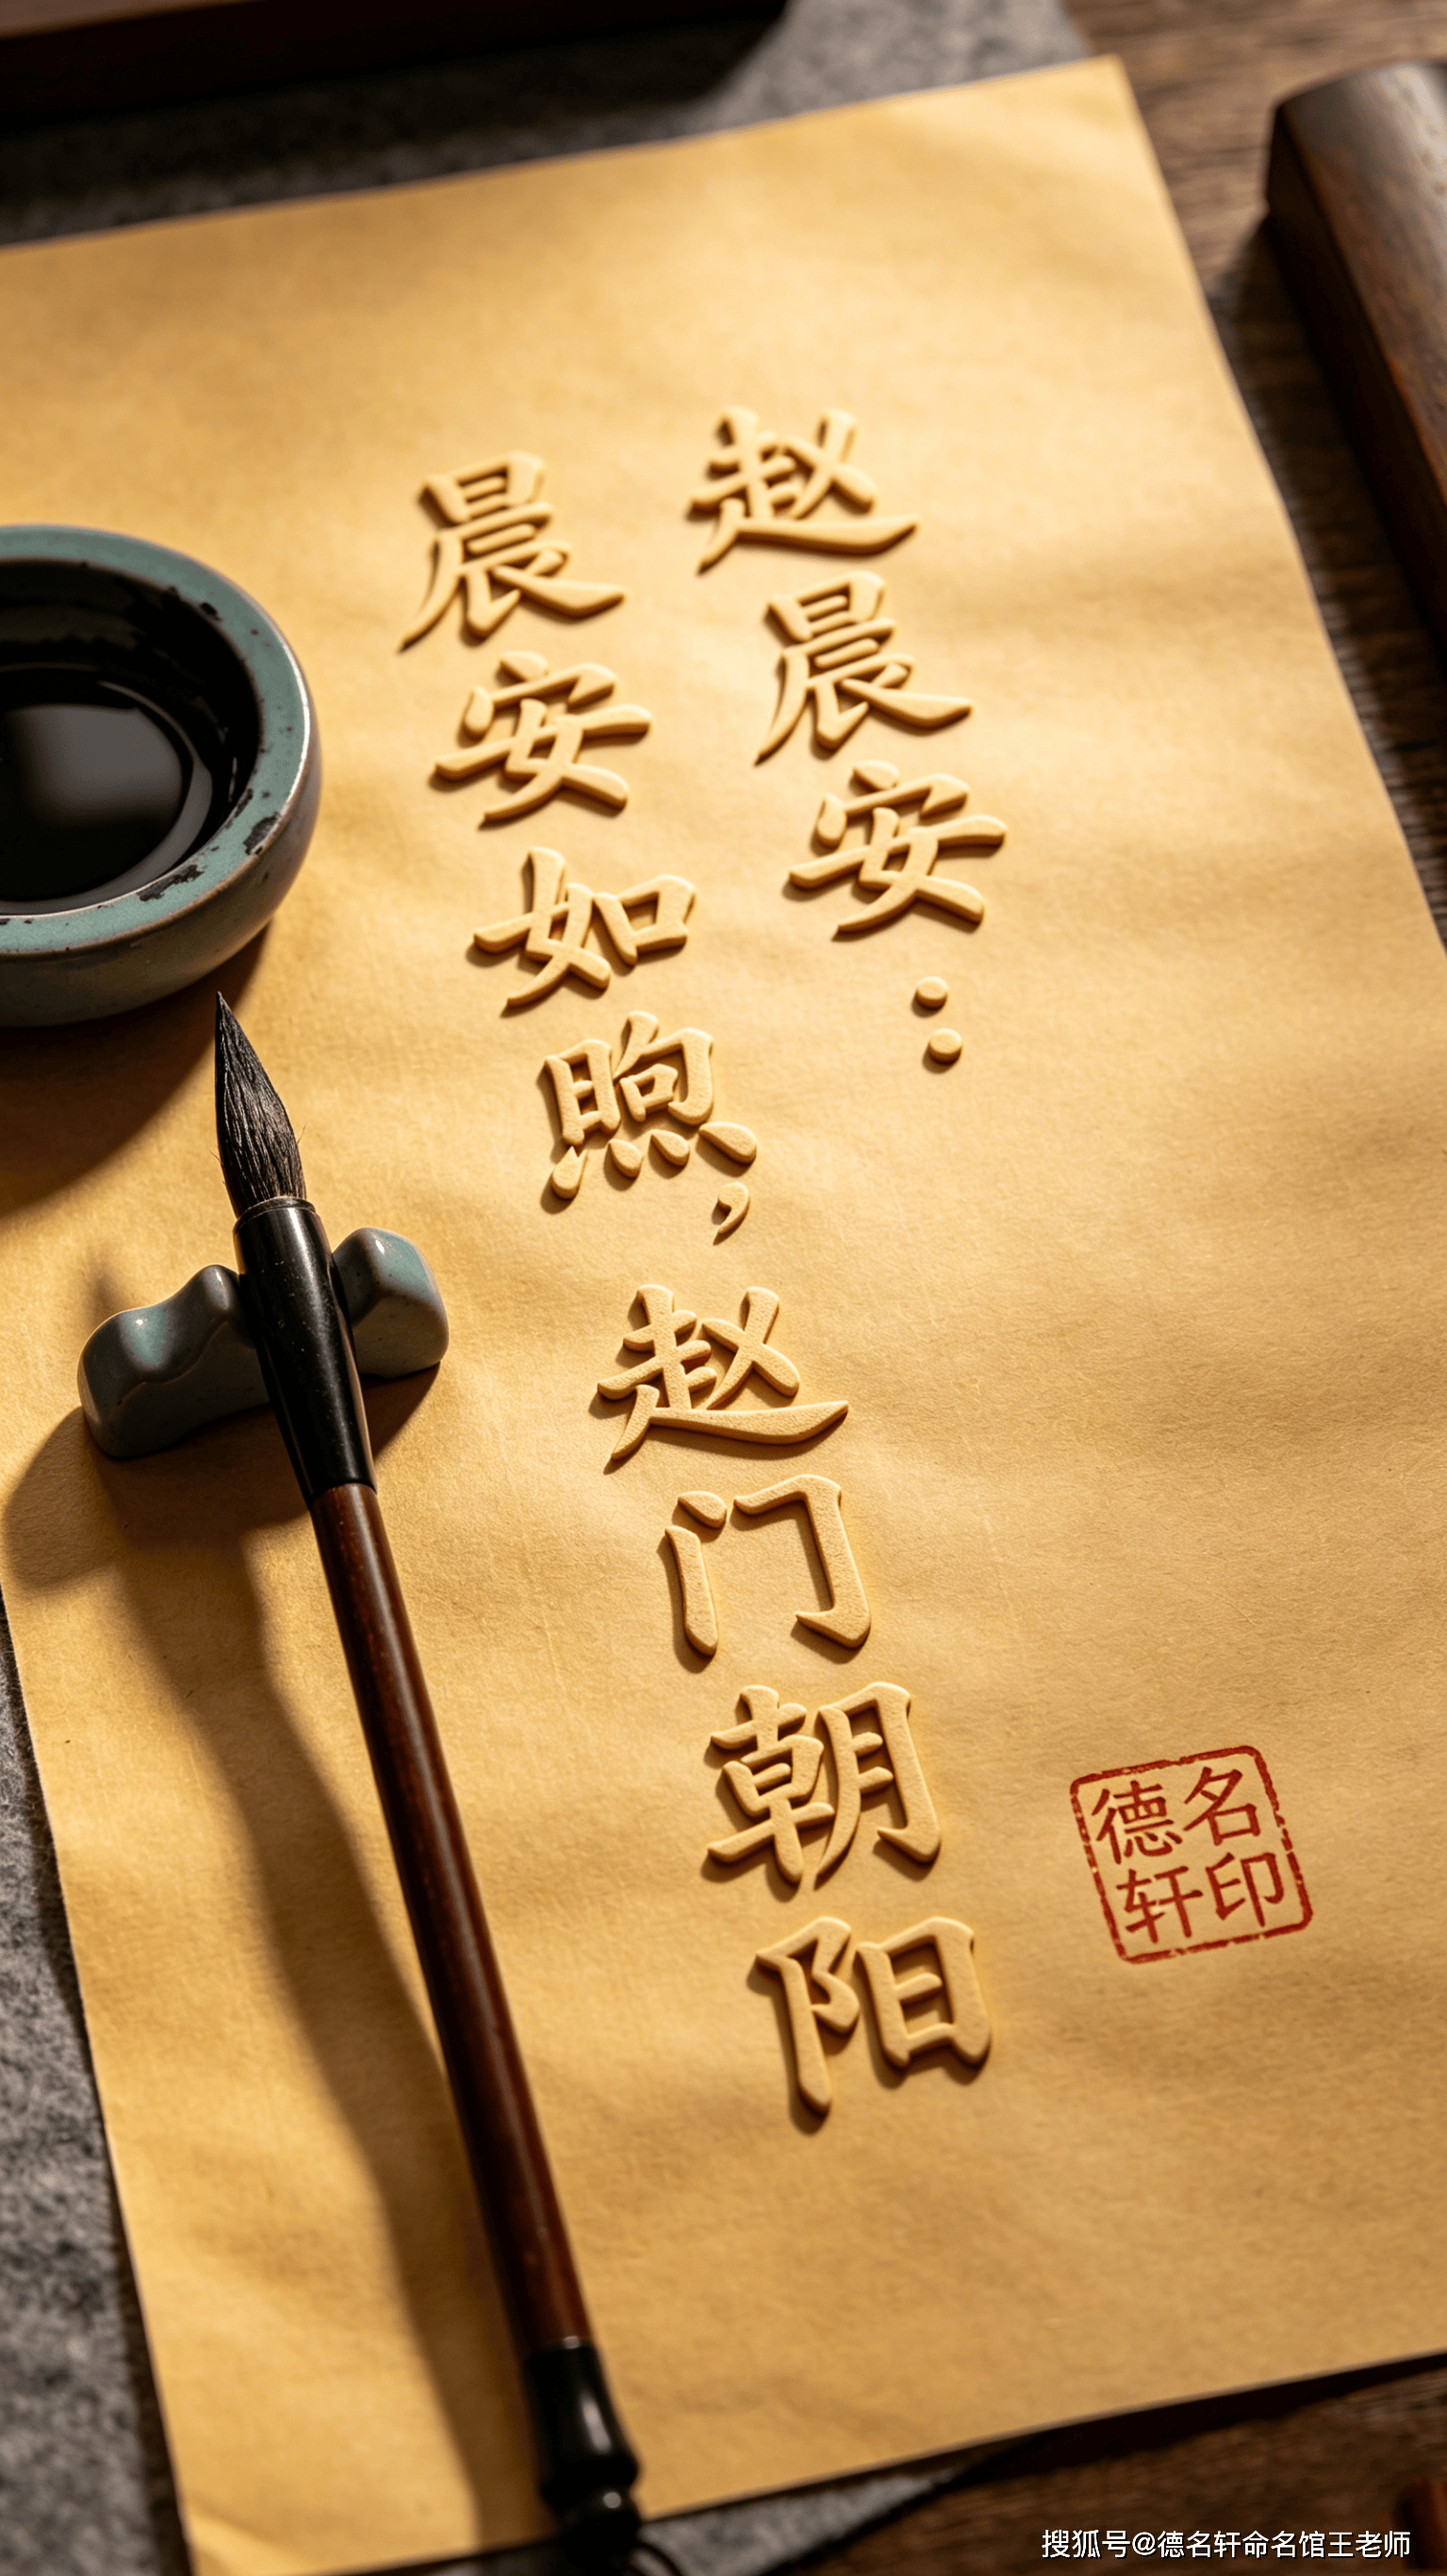 赵晨安：
晨安如煦，赵门朝阳
德名
轩印
搜狐号@德名轩命名馆王老师